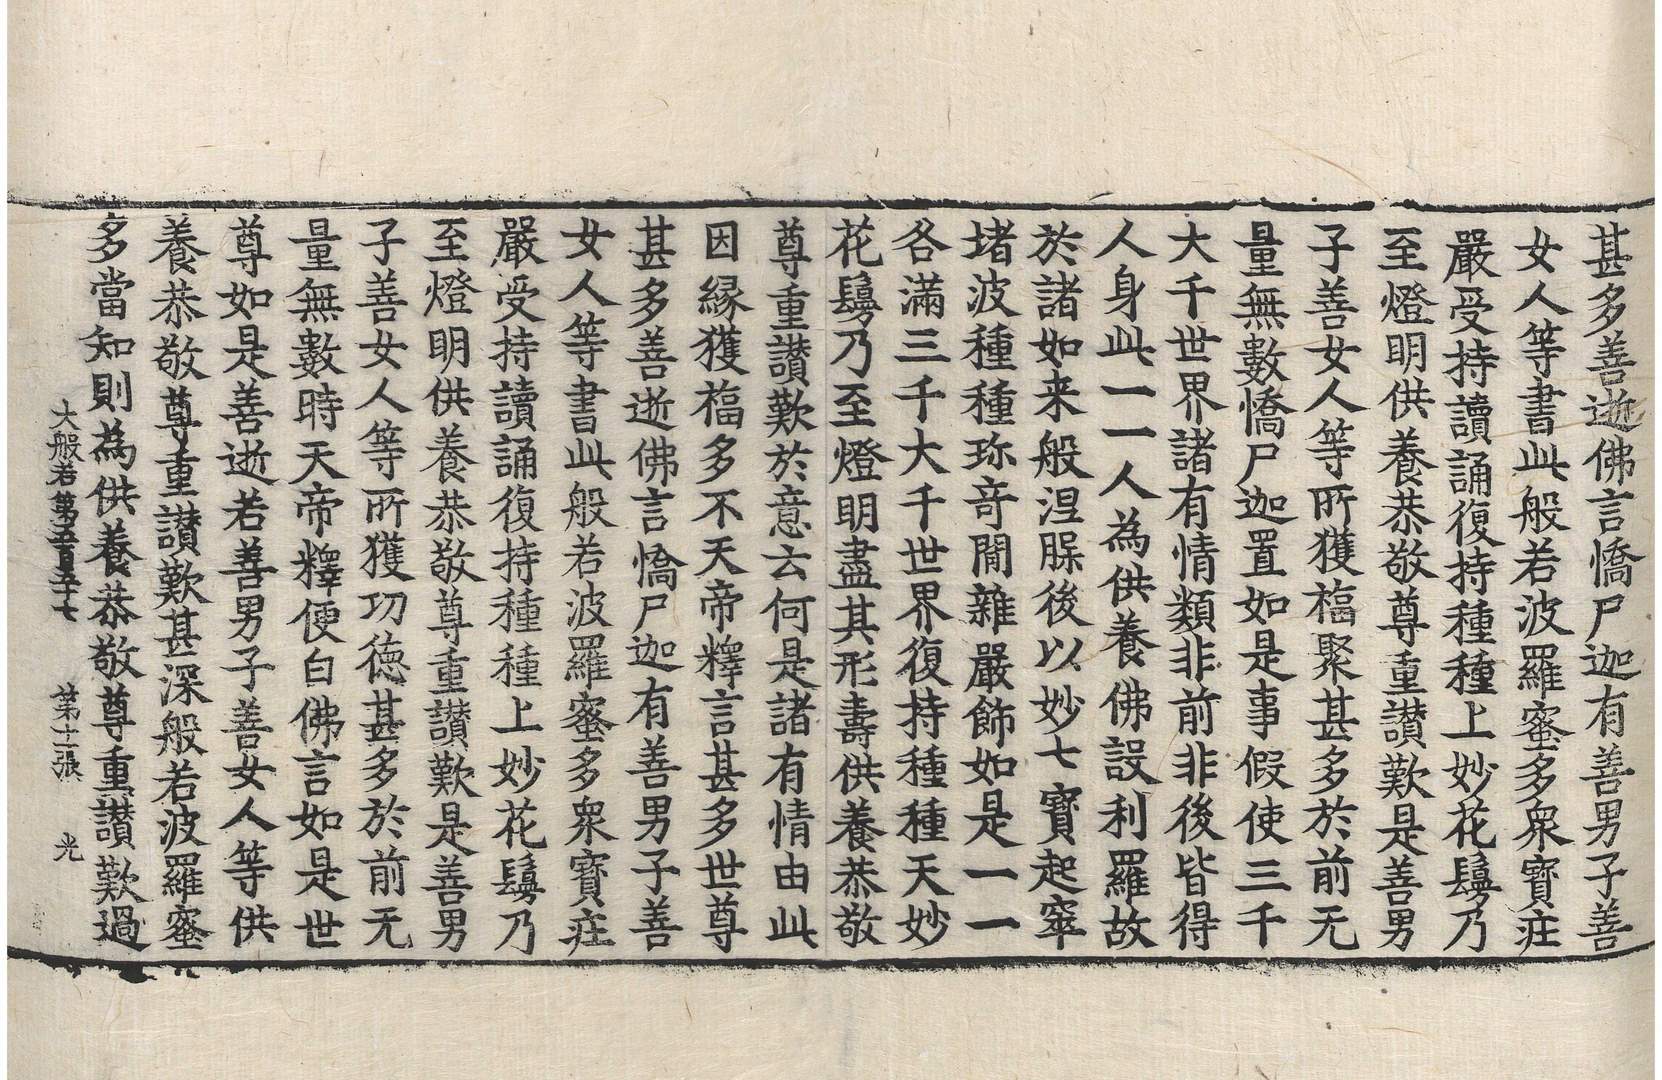 甚多善逝佛言憍尸迦有善男子善
女人等書此般若波羅蜜多衆寶莊
嚴受持讀誦復持種種上妙花鬘乃
至燈明供養恭敬尊重讃歎是善男
子善女人等所獲福聚甚多於前无
量無數憍尸迦置如是事假使三千
大千世界諸有情類非前非後皆得
人身此一一人為供養佛設利羅故
於諸如来般涅槃後以妙七寶起窣
堵波種種珎竒閒雜嚴飾如是一一
各滿三千大千世界復持種種天妙
花鬘乃至燈明盡其形壽供養恭敬
尊重讃歎於意云何是諸有情由此
因緣獲福多不天帝釋言甚多世尊
甚多善逝佛言憍尸迦有善男子善
女人等書此般若波羅蜜多衆寶莊
嚴受持讀誦復持種種上妙花鬘乃
至燈明供養恭敬尊重讃歎是善男
子善女人等所獲功德甚多於前无
量無數時天帝釋便白佛言如是世
尊如是善逝若善男子善女人等供
養恭敬尊重讃歎甚深般若波羅蜜
多當知則為供養恭敬尊重讃歎過
大般若第五百五十七 第十二張 光